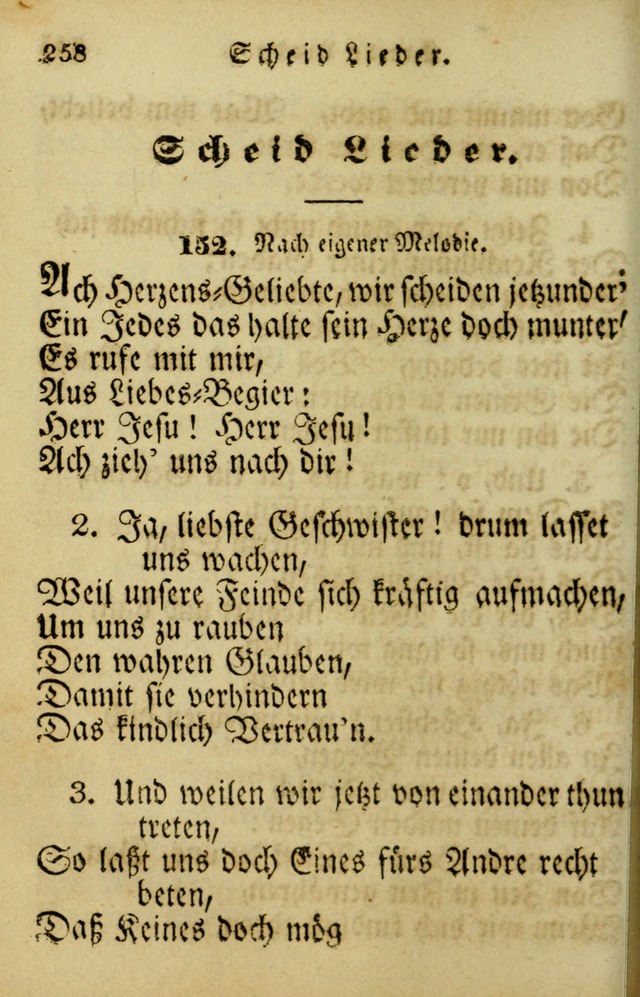 258 Scheid Lieder.
Scheid Lieder.
152. Nach eigener Melodie.
Ach Herzens-Geliebte, wir scheiden jetzunder'
Ein Jedes das halte sein Herze doch munter'
Es rufe mit mir,
Aus Liebes-Begier:
Herr Jesu! Herr Jesu!
Ach zieh' uns nach dir!
2. Ja, liebste Geschwister! drum lasset
uns wachen,
Weil unsere Feinde sich kräftig aufmachen,
Um uns zu rauben
Den wahren Glauben,
Damit sie verhindern
Das kindlich Vertrau'n.
3. Und weilen wir jetzt von einander thun
treten,
So laßt uns doch Eines fürs Andre recht
beten,
Daß Keines doch mög